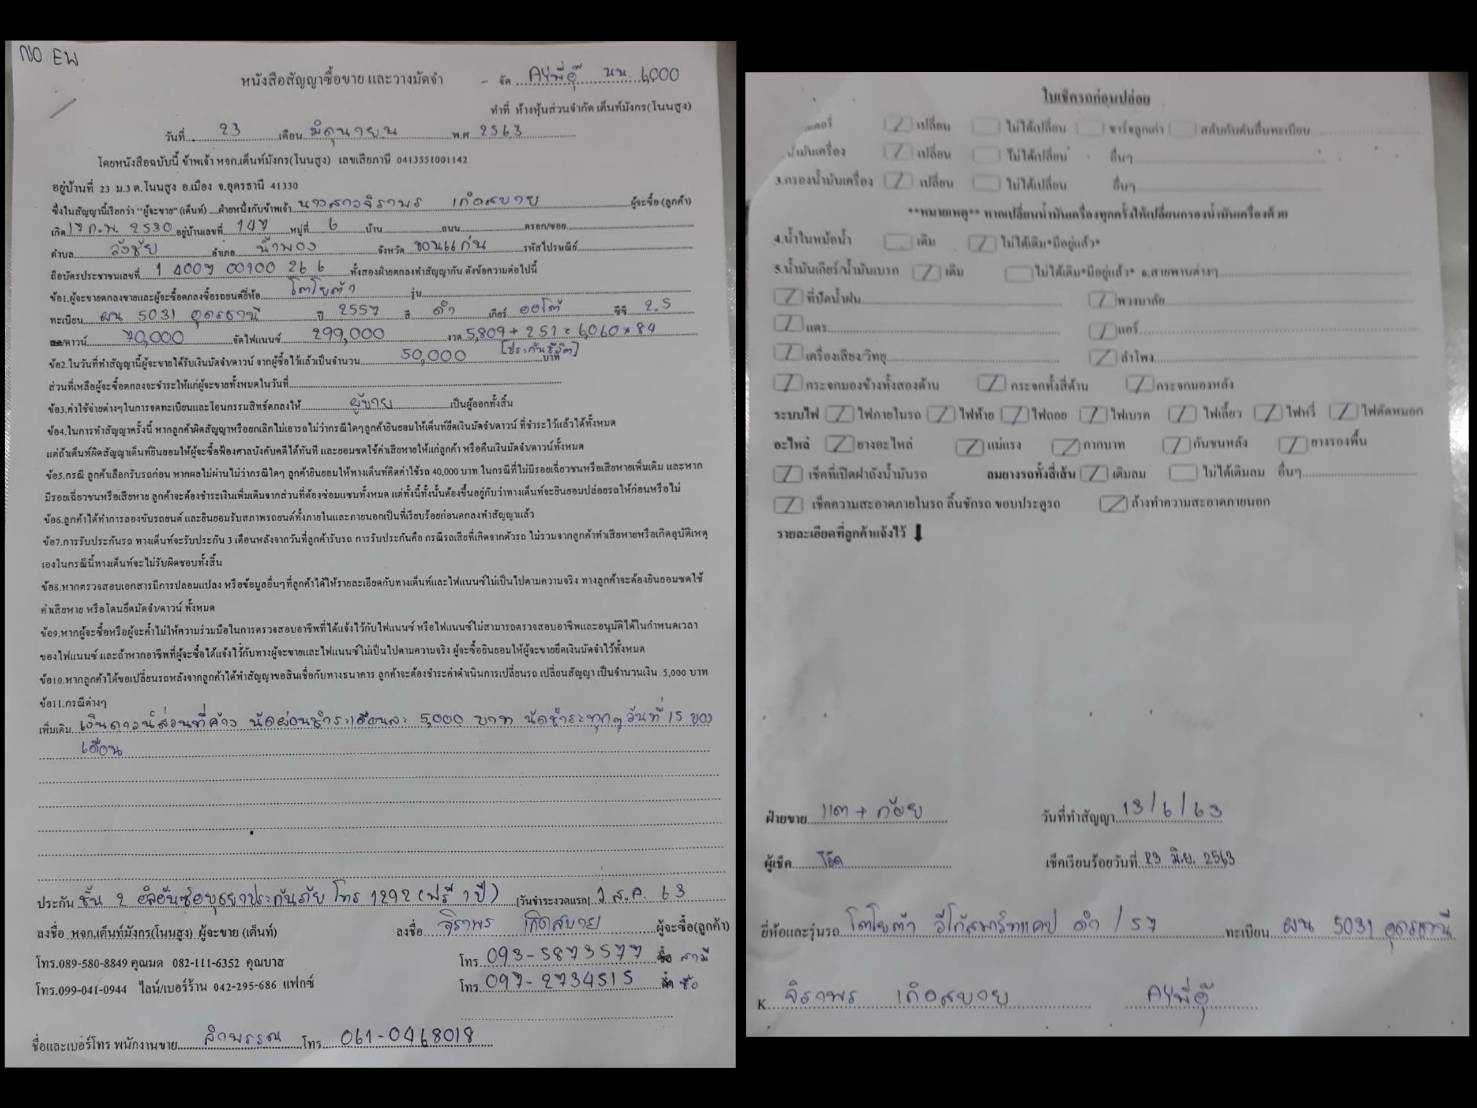 NO EW
หนังสือสัญญาซื้อขาย และวางมัดจำ - จัด AYพี่อุ๊ นน. 6,000
ทำที่ ห้างหุ้นส่วนจำกัด เต็นท์มังกร(โนนสูง)
วันที่ 23 เดือน มิถุนายน พ.ศ 2563
โดยหนังสือฉบับนี้ ข้าพเจ้า หจก.เต็นท์มังกร(โนนสูง) เลขเสียภาษี 0413551001142
อยู่บ้านที่ 23 ม.3 ต.โนนสูง อ.เมือง จ.อุดรธานี 41330
ซึ่งในสัญญานี้เรียกว่า "ผู้จะขาย" (เต็นท์) ฝ่ายหนึ่งกับข้าพเจ้า นางสาวจิราพร เกิดสบาย ผู้จะซื้อ (ลูกค้า)
เกิด 17 ก.พ. 2530 อยู่บ้านเลขที่ 147 หมู่ที่ 6 บ้าน ถนน ตรอก/ซอย
ตำบล วังชัย อำเภอ น้ำพอง จังหวัด ขอนแก่น รหัสไปรษณีย์
ถือบัตรประชาชนเลขที่ 1 4007 00100 26 6 ทั้งสองฝ่ายตกลงทำสัญญากัน ดังข้อความต่อไปนี้
ข้อ1.ผู้จะขายตกลงขายและผู้จะซื้อตกลงซื้อรถยนต์ยี่ห้อ โตโยต้า รุ่น
ทะเบียน ผน 5031 อุดรธานี ปี 2557 สี ดำ เกียร์ ออโต้ ซีซี 2.5
ดาวน์ 70,000 จัดไฟแนนซ์ 299,000 งวด 5,809 + 251 = 6,060 x 84
ข้อ2.ในวันที่ทำสัญญานี้ผู้จะขายได้รับเงินมัดจำ/ดาวน์ จากผู้ซื้อไว้แล้วเป็นจำนวน 50,000 บาท [ประกันชีวิต]
ส่วนที่เหลือผู้จะซื้อตกลงจะชำระให้แก่ผู้จะขายทั้งหมดในวันที่
ข้อ3.ค่าใช้จ่ายต่างๆในการจดทะเบียนและโอนกรรมสิทธ์ตกลงให้ ผู้ขาย เป็นผู้ออกทั้งสิ้น
ข้อ4.ในการทำสัญญาครั้งนี้ หากลูกค้าผิดสัญญาหรือยกเลิกไม่เอารถ ไม่ว่ากรณีใดๆลูกค้ายินยอมให้เต็นท์ยึดเงินมัดจำ/ดาวน์ ที่ชำระไว้แล้วได้ทั้งหมด
แต่ถ้าเต็นท์ผิดสัญญาเต็นท์ยินยอมให้ผู้จะซื้อฟ้องศาลบังคับคดีได้ทันที และยอมชดใช้ค่าเสียหายให้แก่ลูกค้า หรือคืนเงินมัดจำ/ดาวน์ทั้งหมด
ข้อ5.กรณี ลูกค้าเลือกรับรถก่อน หากผลไม่ผ่านไม่ว่ากรณีใดๆ ลูกค้ายินยอมให้ทางเต็นท์คิดค่าใช้รถ 40,000 บาท ในกรณีที่ไม่มีรอยเฉี่ยวชนหรือเสียหายเพิ่มเติม และหาก
มีรอยเฉี่ยวชนหรือเสียหาย ลูกค้าจะต้องชำระเงินเพิ่มเติมจากส่วนที่ต้องซ่อมแซมทั้งหมด แต่ทั้งนี้ทั้งนั้นต้องขึ้นอยู่กับว่าทางเต็นท์จะยินยอมปล่อยรถให้ก่อนหรือไม่
ข้อ6.ลูกค้าได้ทำการลองขับรถยนต์ และยินยอมรับสภาพรถยนต์ทั้งภายในและภายนอกเป็นที่เรียบร้อยก่อนตกลงทำสัญญาแล้ว
ข้อ7.การรับประกันรถ ทางเต็นท์จะรับประกัน 3 เดือนหลังจากวันที่ลูกค้ารับรถ การรับประกันคือ กรณีรถเสียที่เกิดจากตัวรถ ไม่รวมจากลูกค้าทำเสียหายหรือเกิดอุบัติเหตุ
เองในกรณีนี้ทางเต็นท์จะไม่รับผิดชอบทั้งสิ้น
ข้อ8.หากตรวจสอบเอกสารมีการปลอมแปลง หรือข้อมูลอื่นๆที่ลูกค้าได้ให้รายละเอียดกับทางเต็นท์และไฟแนนซ์ไม่เป็นไปตามความจริง ทางลูกค้าจะต้องยินยอมชดใช้
ค่าเสียหาย หรือโดนยึดมัดจำ/ดาวน์ ทั้งหมด
ข้อ9.หากผู้จะซื้อหรือผู้จะค้ำไม่ให้ความร่วมมือในการตรวจสอบอาชีพที่ได้แจ้งไว้กับไฟแนนซ์ หรือไฟแนนซ์ไม่สามารถตรวจสอบอาชีพและอนุมัติได้ในกำหนดเวลา
ของไฟแนนซ์ และถ้าหากอาชีพที่ผู้จะซื้อได้แจ้งไว้กับทางผู้จะขายและไฟแนนซ์ไม่เป็นไปตามความจริง ผู้จะซื้อยินยอมให้ผู้จะขายยึดเงินมัดจำไว้ทั้งหมด
ข้อ10.หากลูกค้าได้ขอเปลี่ยนรถหลังจากลูกค้าได้ทำสัญญาขอสินเชื่อกับทางธนาคาร ลูกค้าจะต้องชำระค่าดำเนินการเปลี่ยนรถ เปลี่ยนสัญญา เป็นจำนวนเงิน 5,000 บาท
ข้อ11.กรณีต่างๆ
เพิ่มเติม เงินดาวน์ส่วนที่ค้าง นัดผ่อนชำระเดือนละ 5,000 บาท นัดชำระทุกๆวันที่ 15 ของ
เดือน
ประกัน ชั้น 2 อลิอันซ์อยุธยาประกันภัย โทร 1292 (ฟรี 1 ปี) [วันชำระงวดแรก] 1 ส.ค. 63
ลงชื่อ หจก.เต็นท์มังกร(โนนสูง) ผู้จะขาย (เต็นท์) ลงชื่อ จิราพร เกิดสบาย ผู้จะซื้อ(ลูกค้า)
โทร.089-580-8849 คุณมด 082-111-6352 คุณบาส โทร. 093-5873577 สามี
โทร.099-041-0944 ไลน์/เบอร์ร้าน 042-295-686 แฟกซ์ โทร. 097-2734515 ซื้อ
ชื่อและเบอร์โทร พนักงานขาย ลำพรรณ โทร 061-0468018
ใบเช็กรถก่อนปล่อย
เปลี่ยน ไม่ได้เปลี่ยน ชาร์จลูกเก่า สลับกับคันอื่นทะเบียน
น้ำมันเครื่อง เปลี่ยน ไม่ได้เปลี่ยน อื่นๆ
3.กรองน้ำมันเครื่อง เปลี่ยน ไม่ได้เปลี่ยน อื่นๆ
**หมายเหตุ** หากเปลี่ยนน้ำมันเครื่องทุกครั้งให้เปลี่ยนกรองน้ำมันเครื่องด้วย
4.น้ำในหม้อน้ำ เติม ไม่ได้เติม*มีอยู่แล้ว*
5.น้ำมันเกียร์/น้ำมันเบรก เติม ไม่ได้เติม*มีอยู่แล้ว* 6.สายพานต่างๆ
ที่ปัดน้ำฝน พวงมาลัย
แตร แอร์
เครื่องเสียง/วิทยุ ลำโพง
กระจกมองข้างทั้งสองด้าน กระจกทั้งสี่ด้าน กระจกมองหลัง
ระบบไฟ ไฟภายในรถ ไฟท้าย ไฟถอย ไฟเบรค ไฟเลี้ยว ไฟหรี่ ไฟตัดหมอก
อะไหล่ ยางอะไหล่ แม่แรง กากบาท กันชนหลัง ยางรองพื้น
เช็คที่เปิดฝาถังน้ำมันรถ ลมยางรถทั้งสี่เส้น เติมลม ไม่ได้เติมลม อื่นๆ
เช็คความสะอาดภายในรถ ลิ้นชักรถ ขอบประตูรถ ล้างทำความสะอาดภายนอก
รายละเอียดที่ลูกค้าแจ้งไว้ ⬇
ฝ่ายขาย แต + ก้อย วันที่ทำสัญญา 13/6/63
ผู้เช็ค โอ๊ต เช็คเรียบร้อยวันที่ 23 มิ.ย. 2563
ยี่ห้อและรุ่นรถ โตโยต้า วีโก้สมาร์ทแคป ดำ / 57 ทะเบียน ผน 5031 อุดรธานี
K. จิราพร เกิดสบาย AYพี่อุ๊